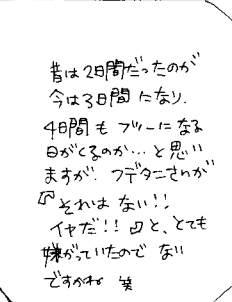 昔は2日間だったのが
今は3日間になり.
4日間もフツーになる
日がくるのか…と思い
ますが. フデタニさんが
『それはない!!
イヤだ!!』と、とても
嫌がっていたのでない
ですかね 笑